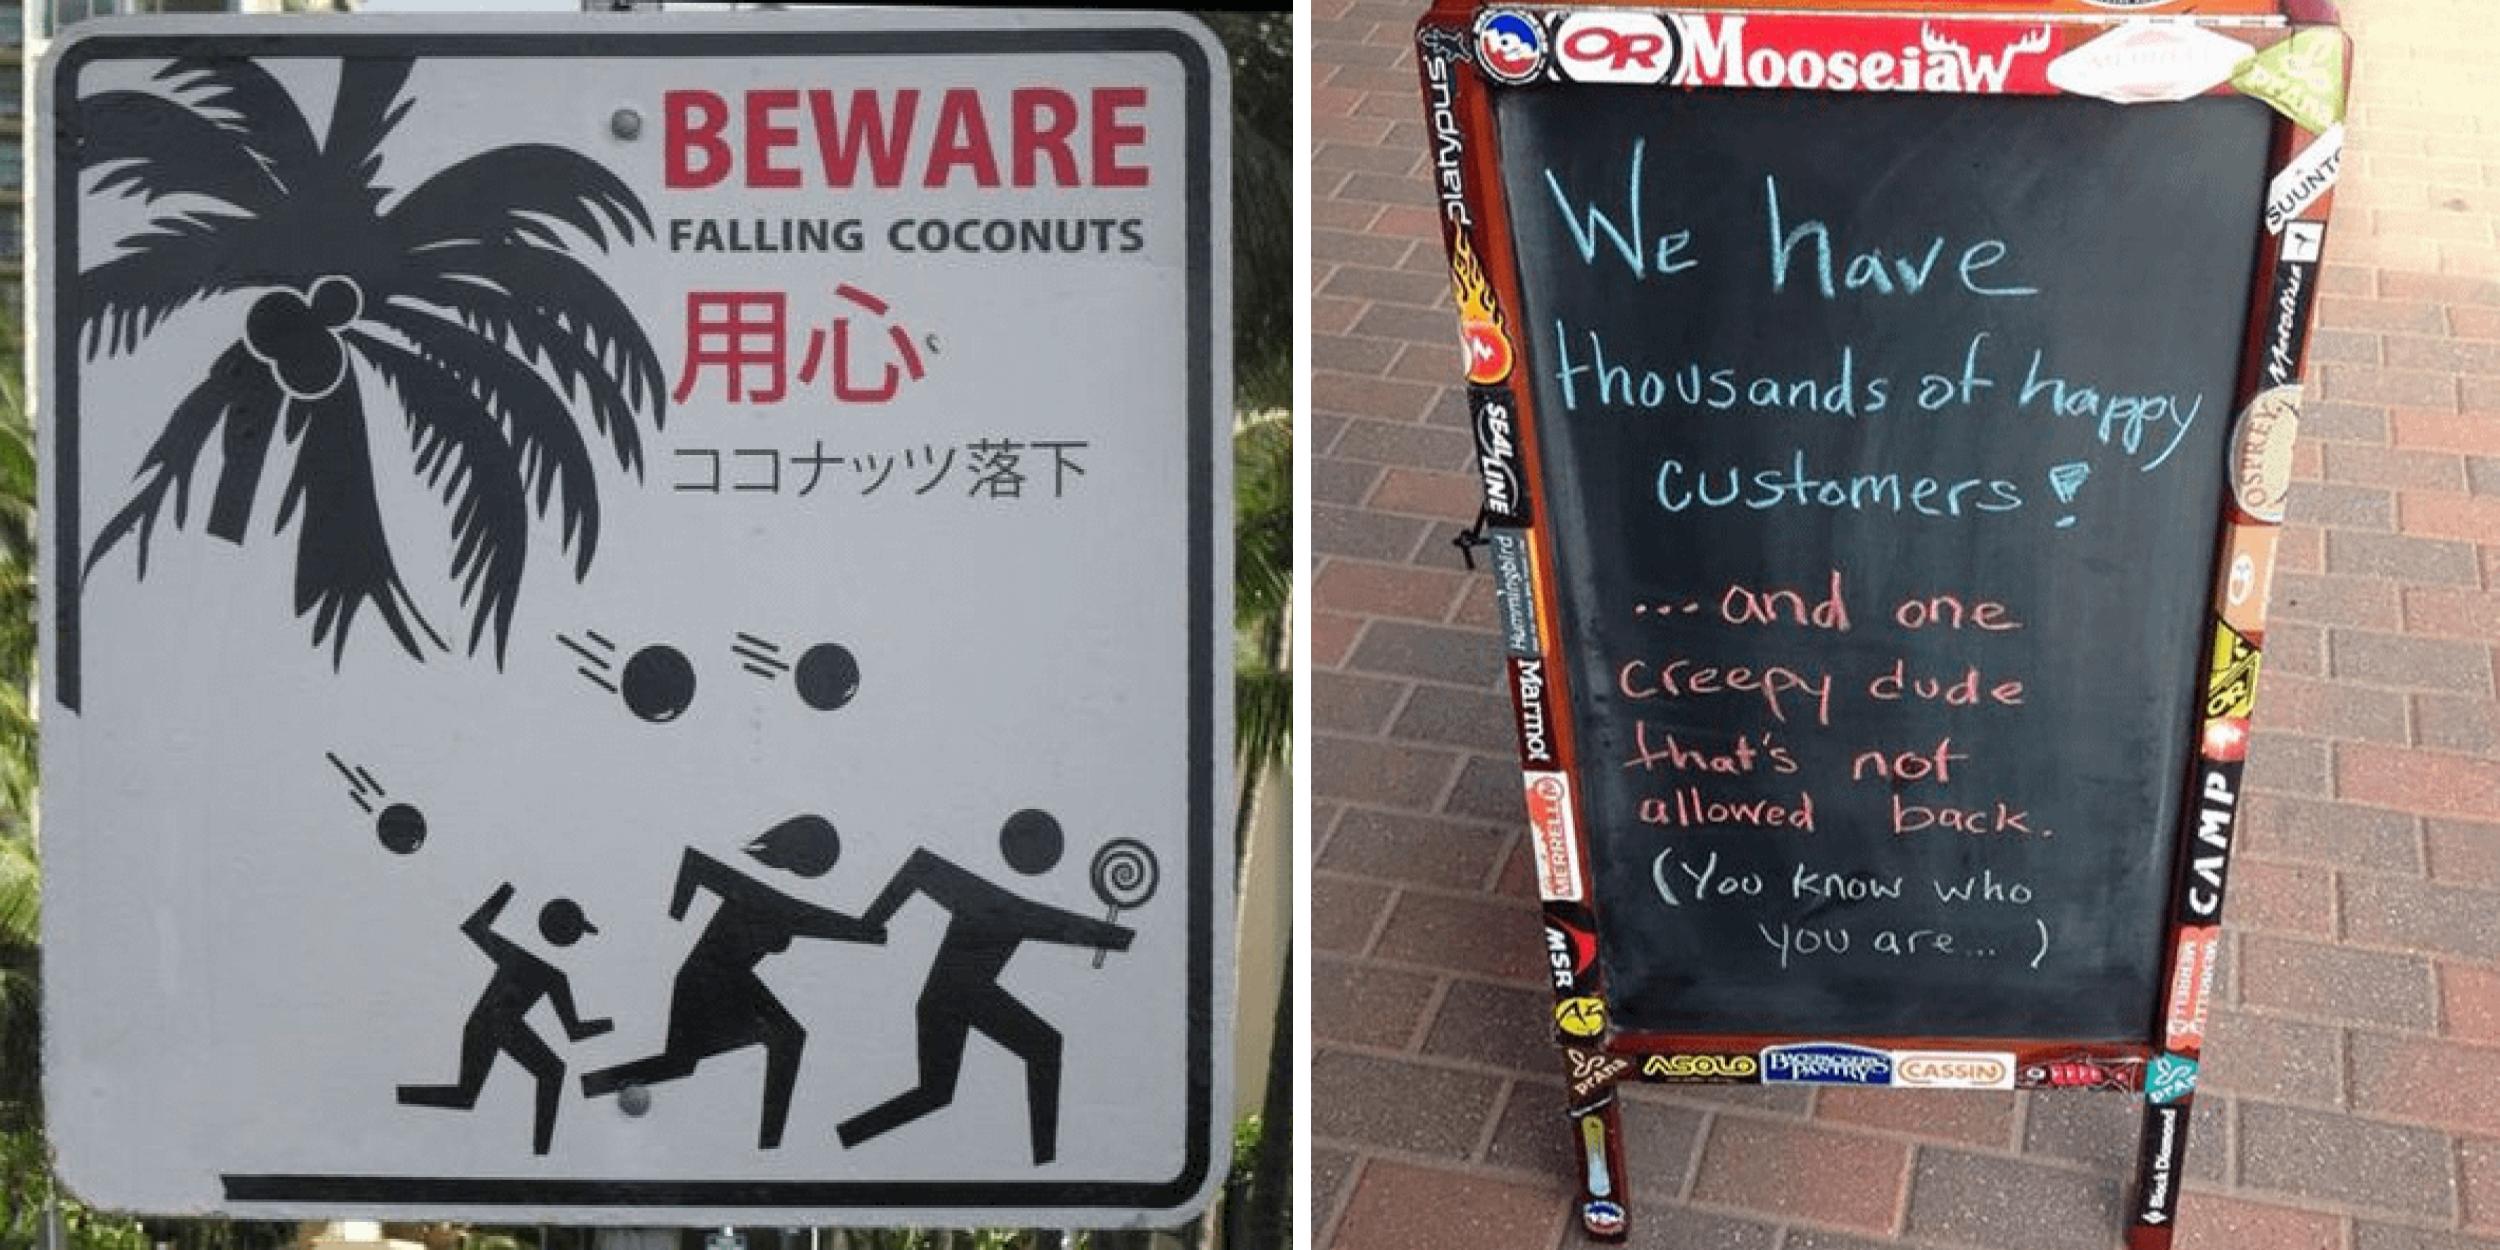 BEWARE
FALLING COCONUTS
用心
ココナッツ落下
OR
Moosejaw
platypus
SUUNTO
SEALLINE
Hummingbird
Marmot
MERRELL
MSR
prAna
Marmot
OSPREY
OR
CAMP
We have
thousands of happy
customers!
...and one
creepy dude
that's not
allowed back.
(You know who
you are...)
ASOLO
BACKPACKER'S PANTRY
CASSIN
Black Diamond